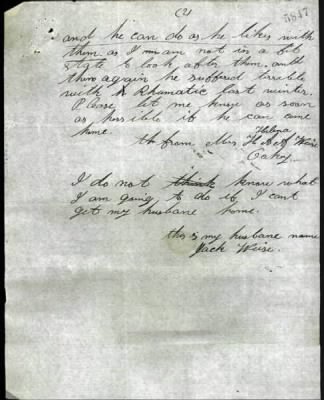 (2)
and he can do as he likes with
them. as I am not in a fit
state to look after them. and
then again he suffered terrible
with Rhumatic last winter.
Please let me know as soon
as possible if he can come
home.
from Mrs.
Oakey
I do not think know what
I am going to do if I cant
get my husbane home.
this is my husbane name
Jack Weise.